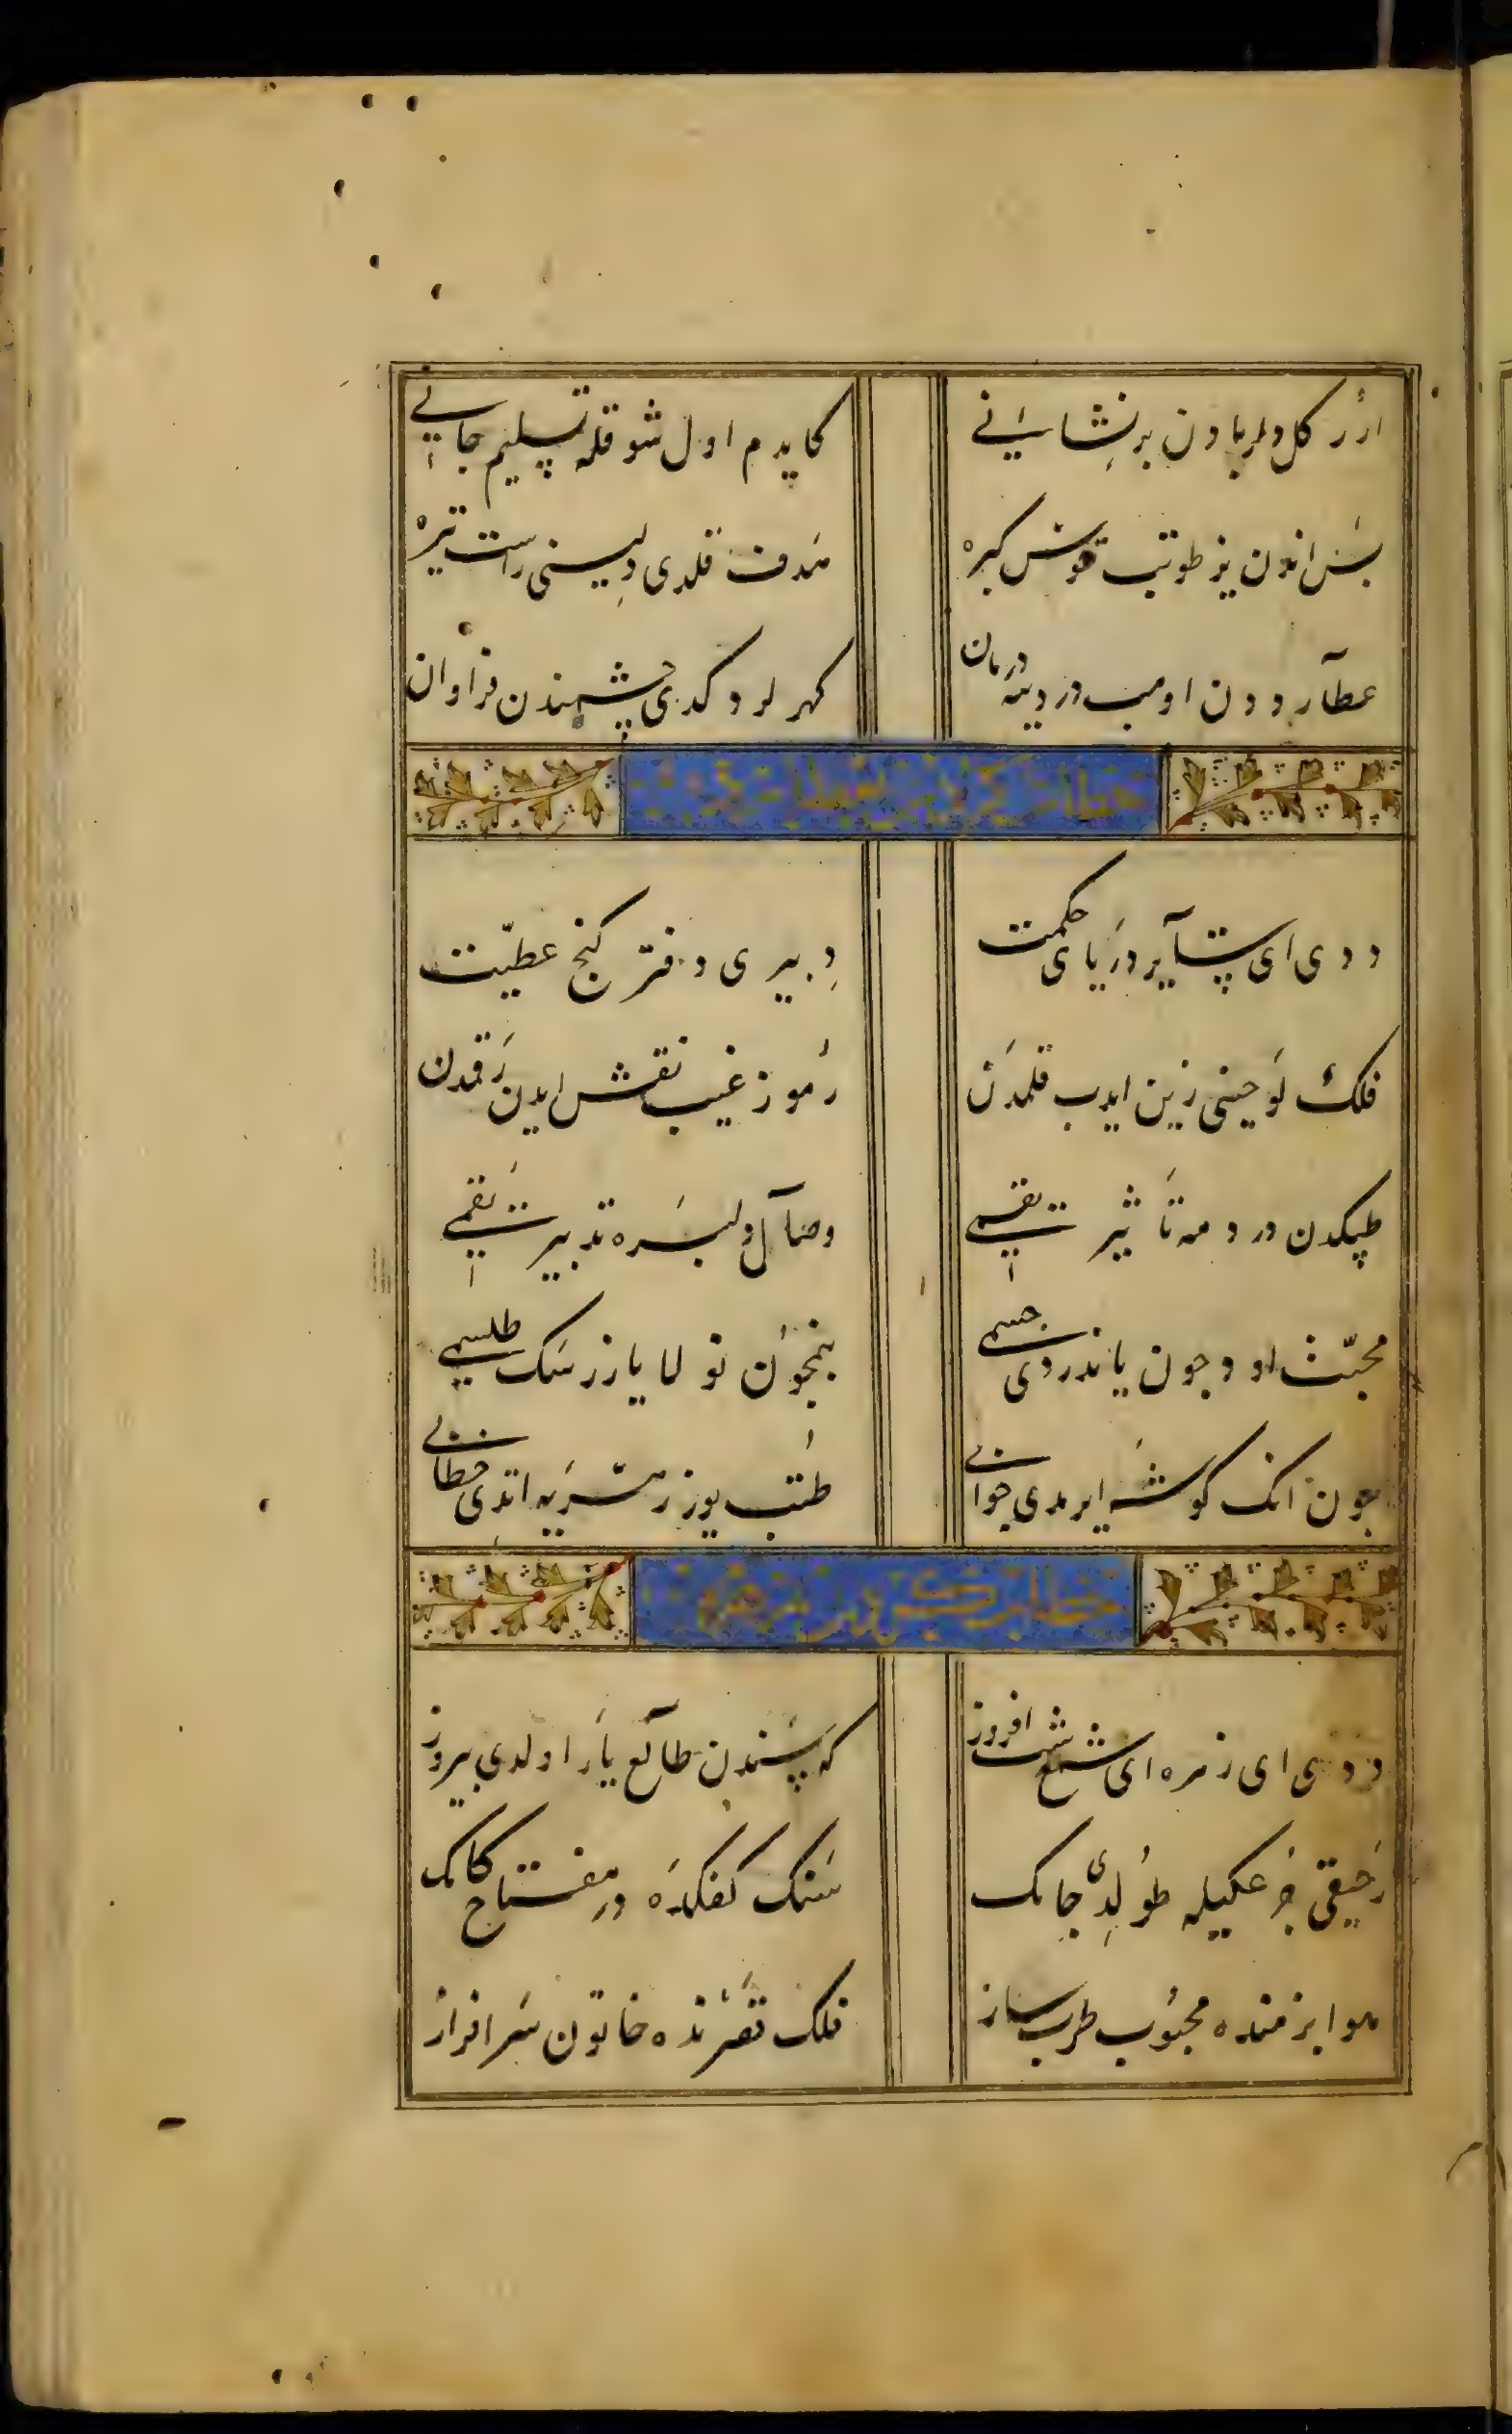 ارر کل دلربادن بر نشانی
کایدم اول شوقله تسلیم جانی
بس اندن یز طوتب قوس کبره
هدف قلدی دلیسنی راست تیره
عطارددن اومب دردینه درمان
کهرلر دکدی چشمندن فراوان
ددی ای آیر دریای حکمت
دبیری دفتر کنج عطیت
فلک لوحینی زین ایدب قلمدن
رموز غیب نقش ایدن رقمدن
دردمه تأثیر یقمی
وصال دلبره تدبیر یقمی
محبت اود جون یاندردی جسمی
بنمجون نولا یازرسک طلسمی
جون انک کوشه ایرمدی جوابی
طتب یوز مشتریه اتدی خطابی
ددی ای زهره ای شمع شب افروز
که سندن طالع یار اولدی پیروز
رحیقی جرعکیله طولدی جامک
سنک کفکده در مفتاح کامک
هوا بزمنده محبوب طرب ساز
فلک قصرنده خاتون سرافراز